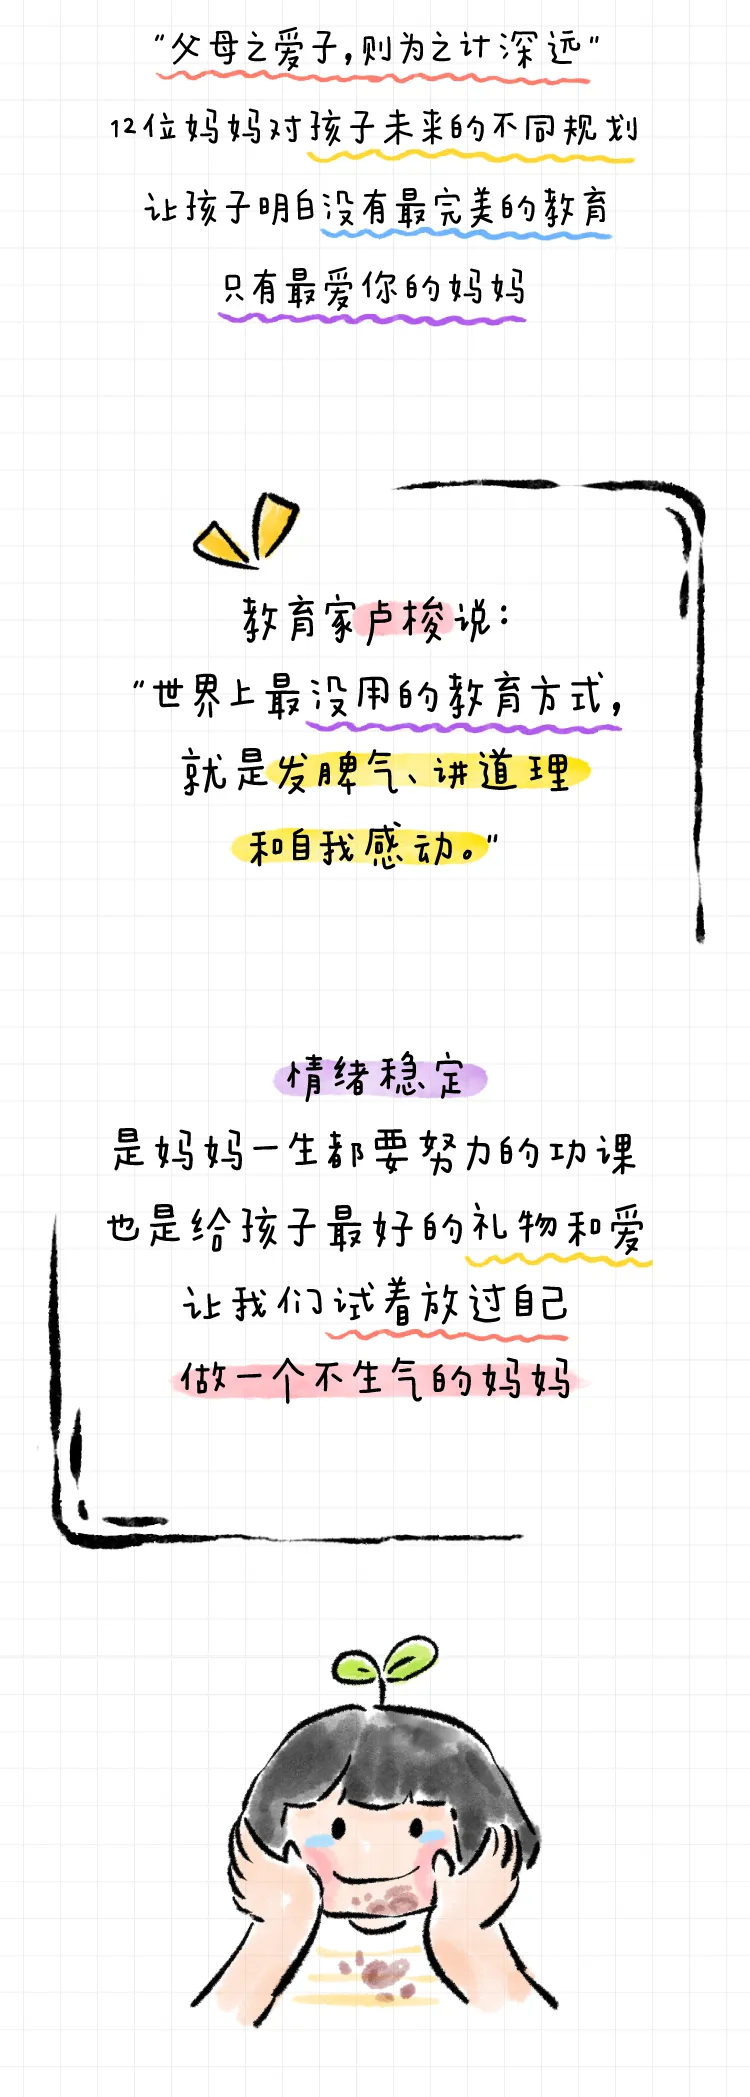 "父母之爱子,则为之计深远"
12位妈妈对孩子未来的不同规划
让孩子明白没有最完美的教育
只有最爱你的妈妈
教育家卢梭说：
"世界上最没用的教育方式，
就是发脾气、讲道理
和自我感动。"
情绪稳定
是妈妈一生都要努力的功课
也是给孩子最好的礼物和爱
让我们试着放过自己
做一个不生气的妈妈